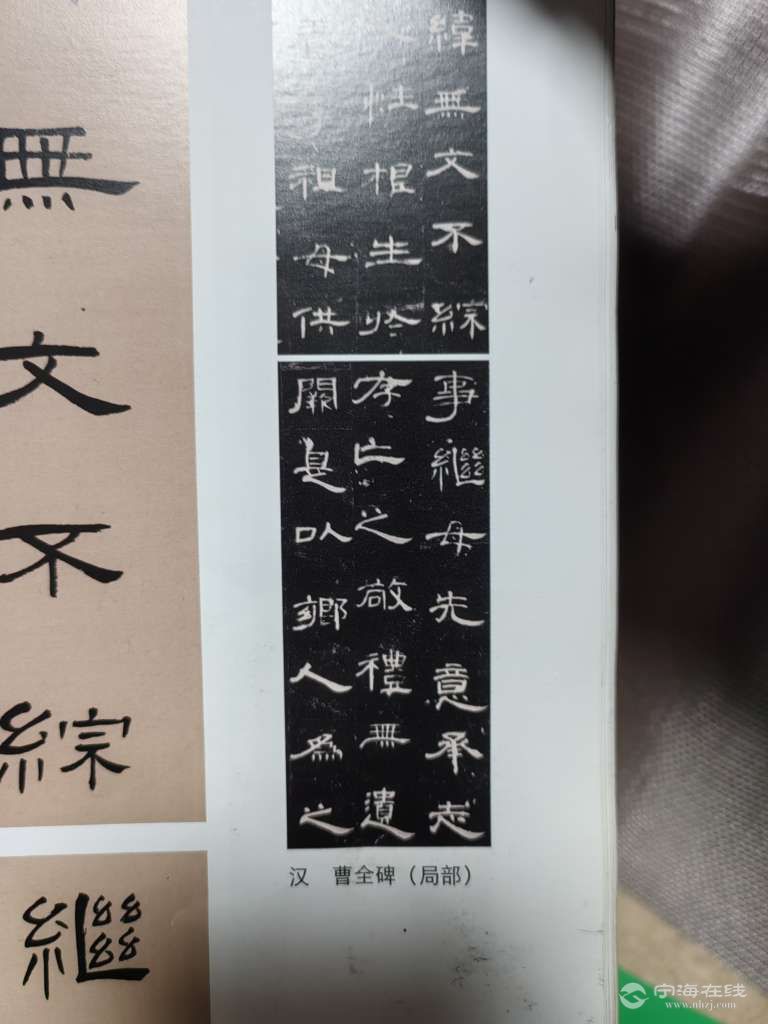 緯無文不綜
性根生於
祖母供
事繼母先意承志
存亡之敬禮無遺
闕是以鄉人為之
汉 曹全碑（局部）
無文不綜
繼
宁海在线
www.nhzj.com